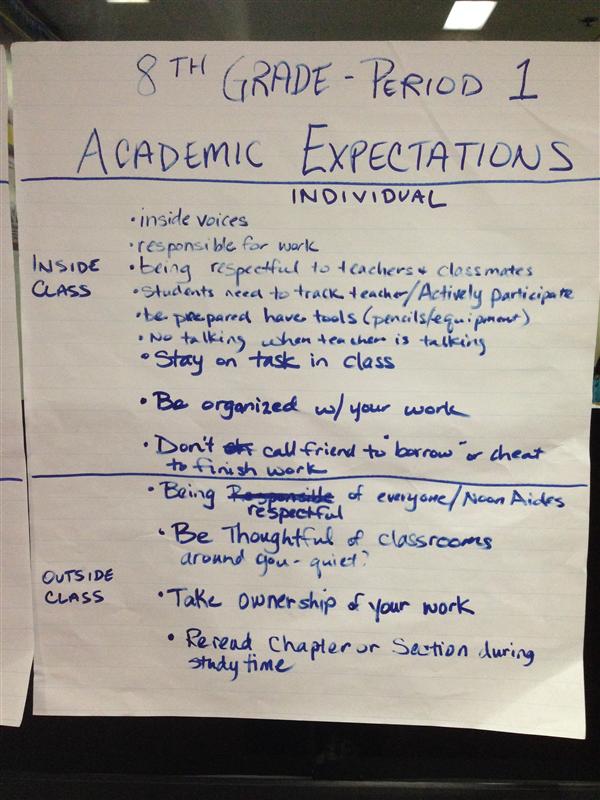 8TH GRADE - PERIOD 1
ACADEMIC EXPECTATIONS
INDIVIDUAL
INSIDE
CLASS
• inside voices
• responsible for work
• being respectful to teachers + classmates
• Students need to track teacher/Actively participate
• be prepared have tools (pencils/equipment)
• No talking when teacher is talking
• Stay on task in class
• Be organized w/ your work
• Don't call friend to "borrow" or cheat
to finish work
OUTSIDE
CLASS
• Being Responsible of everyone/Noon Aides
respectful
• Be Thoughtful of classrooms
around you - quiet?
• Take ownership of your work
• Reread Chapter or Section during
study time